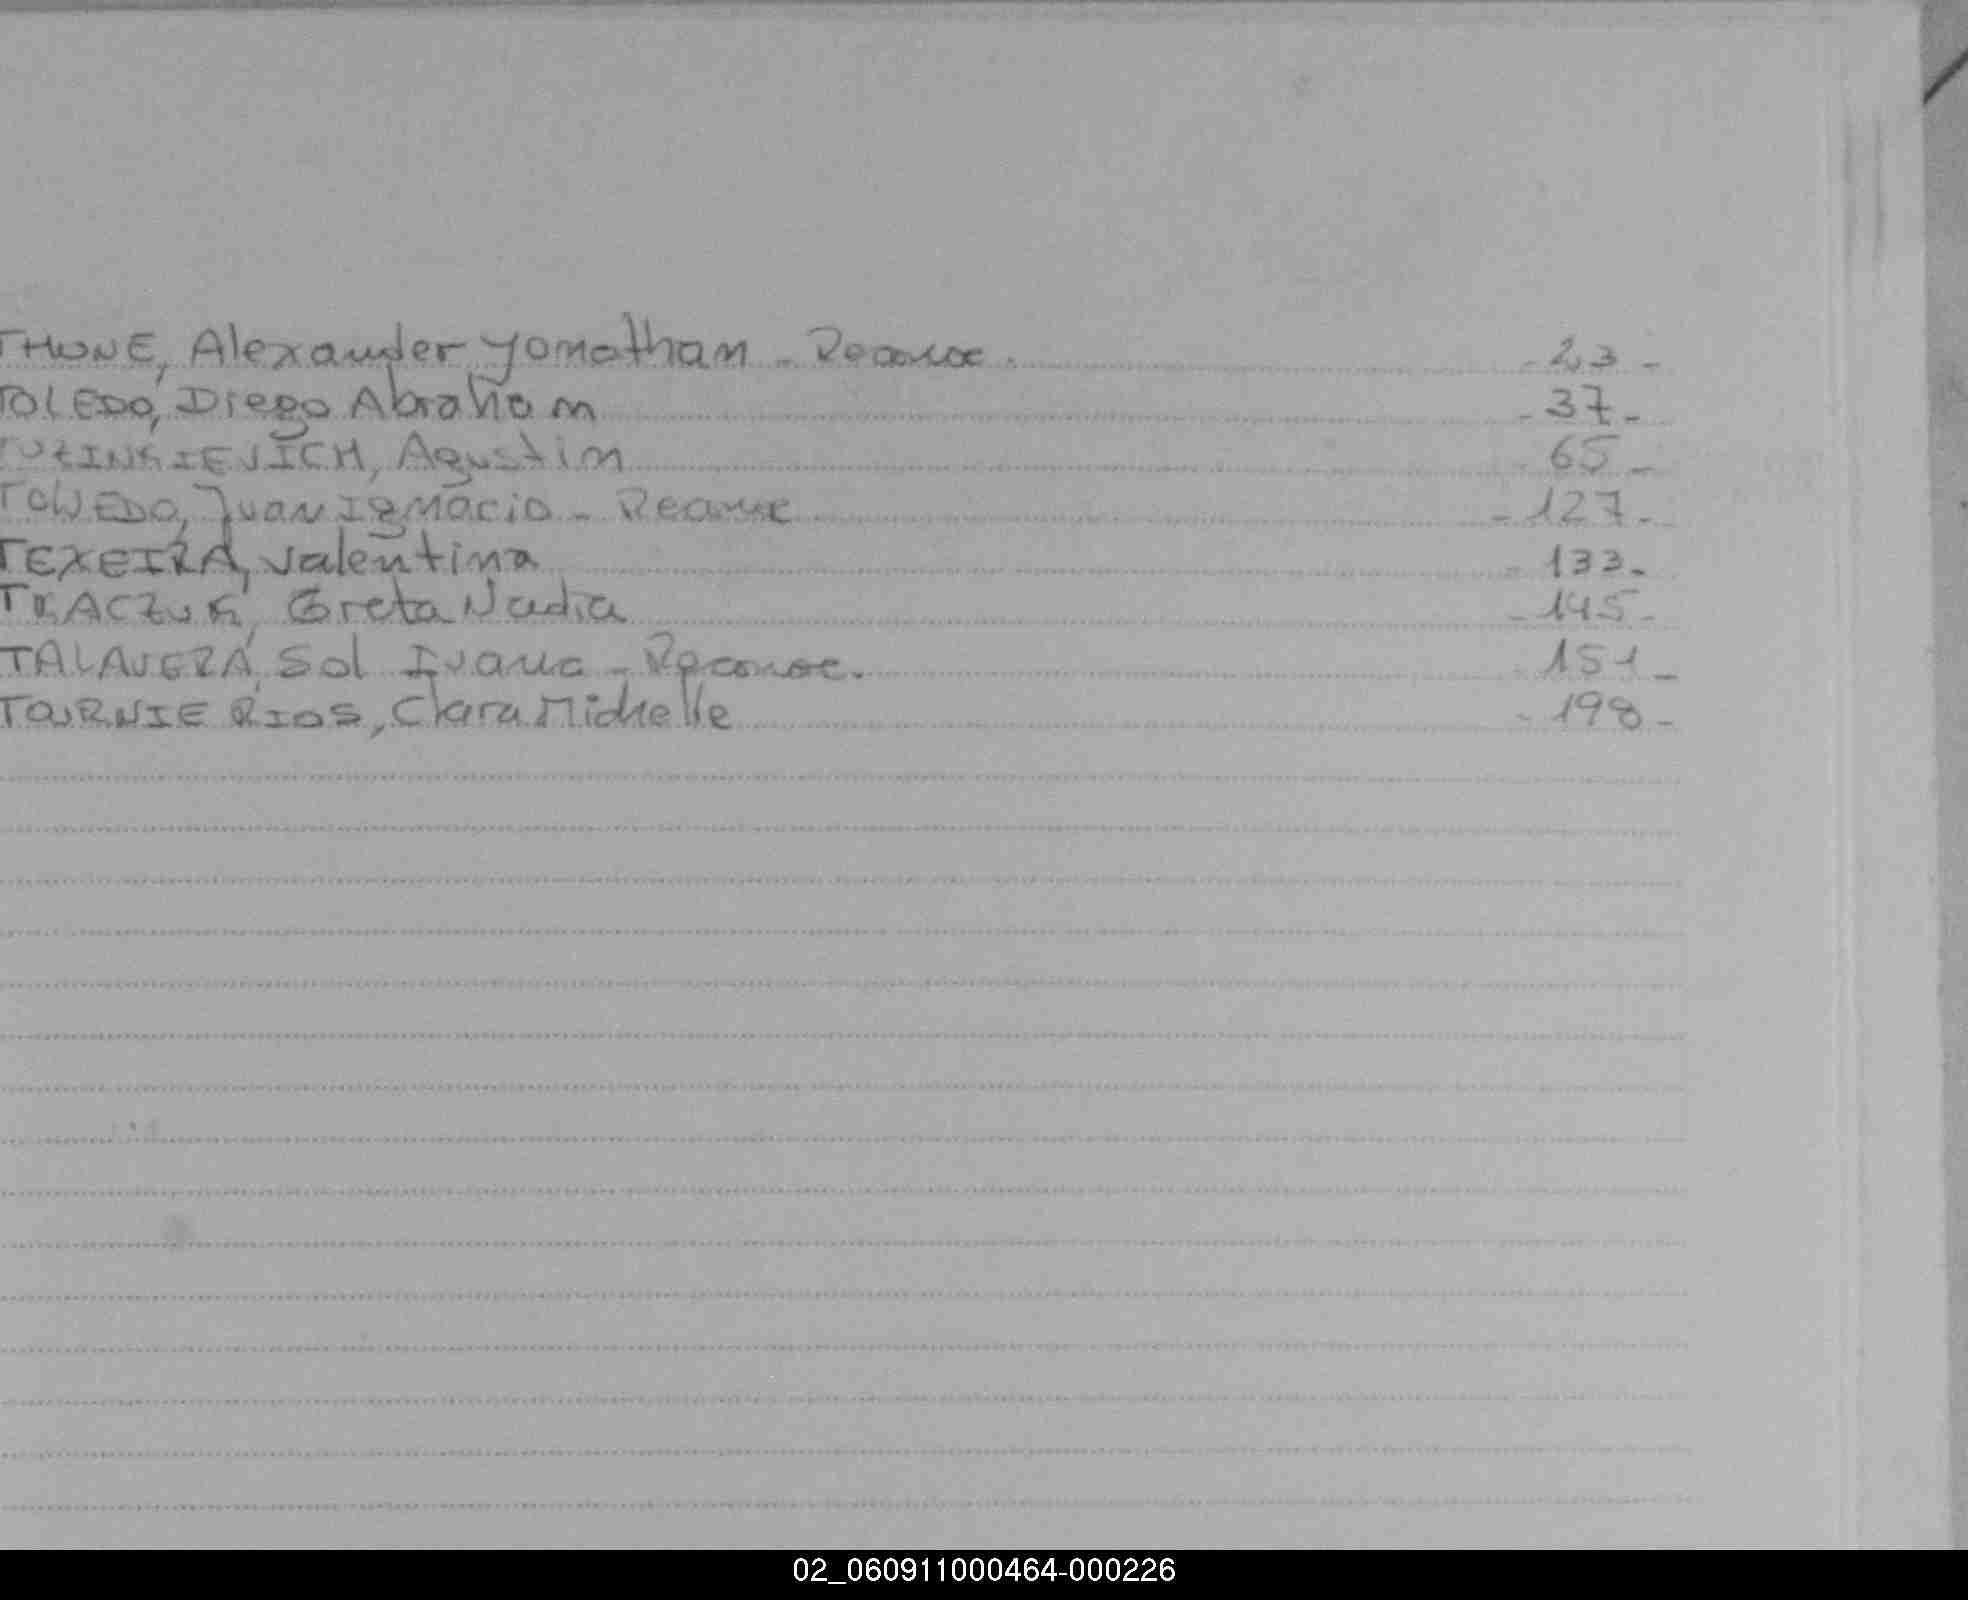 THUNE, Alexander Yonathan - Reconoc. - 23 -
TOLEDO, Diego Abraham - 37 -
Agustin - 65 -
TOLEDO, Juan Ignacio - Reconoc - 127 -
TEXEIRA, Valentina - 133 -
TKACZUK, Greta Nadia - 145 -
TALAVERA, Sol Ivana - Reconoc. - 151 -
TOURNIE RIOS, Clara Michelle - 198 -
02_060911000464-000226